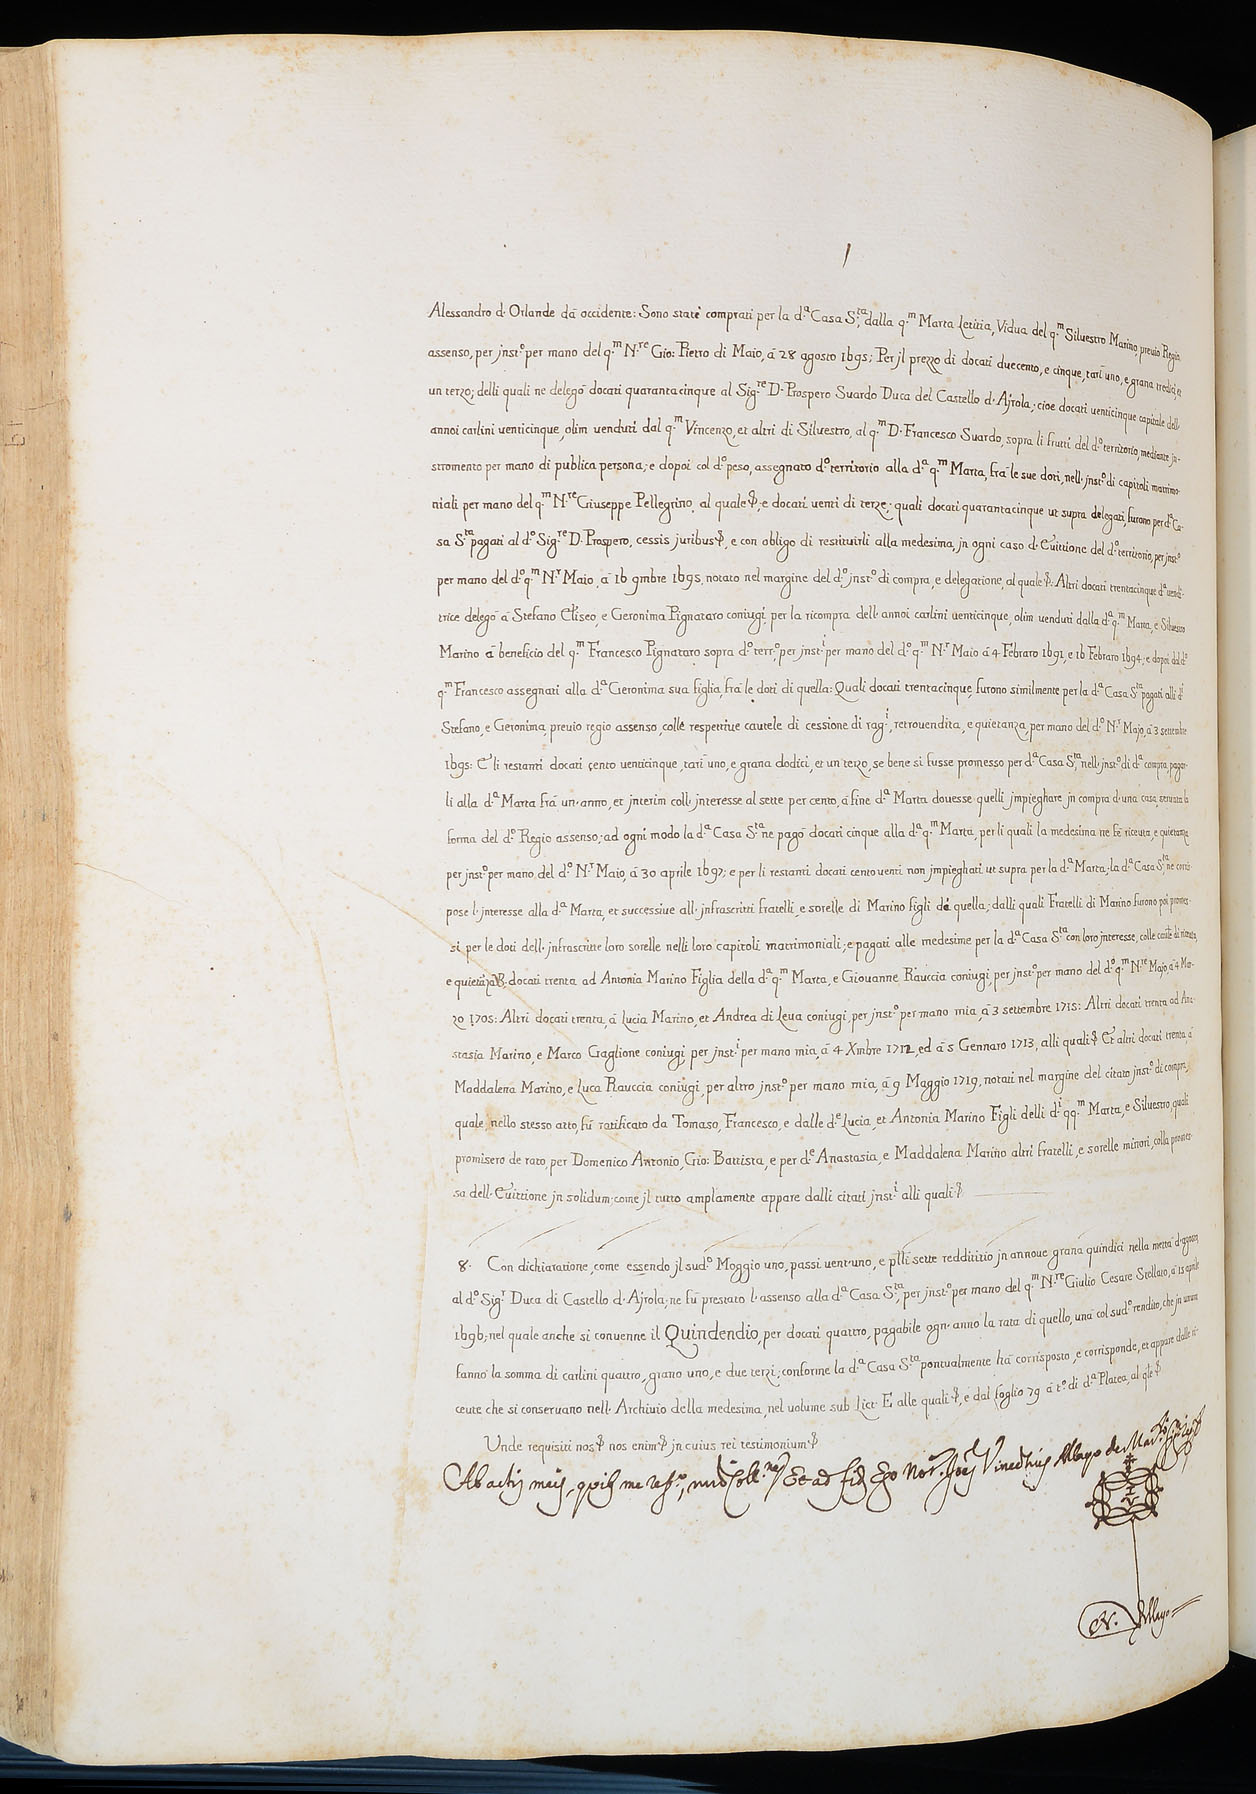 Alessandro d. Orlande dã occidente: Sono state comprati per la d.ª Casa S.ta, dalla q.m Marta Letitia, Vidua del q.m Silvestro Marino, previo Regio
assenso, per jnst.º per mano del q.m N.re Gio: Pietro di Maio, ã 28 agosto 1695; Per jl prezzo di docati duecento, e cinque, tarì uno, e grana tredici, et
un terzo; delli quali ne delegò docati quarantacinque al Sig.re D. Prospero Suardo Duca del Castello d. Ajrola; cioe docati venticinque capitale dell.
annoi carlini venticinque, olim venduti dal q.m Vincenzo, et altri di Silvestro, al q.m D. Francesco Suardo, sopra li frutti del d.º territorio, mediante jn-
stromento per mano di publica persona; e dopoi col d.º peso, assegnato d.º territorio alla d.ª q.m Marta, frà le sue doti, nell. jnst.º di capitoli matrimo-
niali per mano del q.m N.re Giuseppe Pellegrino, al quale &; e docati venti di terze; quali docati quarantacinque ut supra delegati, furono per d.ª Ca-
sa S.ta pagati al d.º Sig.re D. Prospero, cessis juribus &, e con obligo di restituirli alla medesima, jn ogni caso d. Evittione del d.º territorio, per jnst.º
per mano del d.º q.m N.r Maio, ã 16 9mbre 1695, notato nel margine del d.º jnst.º di compra, e delegatione, al quale &: Altri docati trentacinque d.ª vendi-
trice delegò ã Stefano Eliseo, e Geronima Pignataro coniugi, per la ricompra dell. annoi carlini venticinque, olim venduti dalla d.ª q.m Marta, e Silvestro
Marino ã beneficio del q.m Francesco Pignataro sopra d.º terr.º, per jnst.i per mano del d.º q.m N.r Maio ã 4 Febraro 1691, e 16 Febraro 1694; e dopoi dal d.º
q.m Francesco assegnati alla d.ª Geronima sua figlia, frà le doti di quella: Quali docati trentacinque, furono similmente per la d.ª Casa S.ta pagati alli d.i
Stefano, e Geronima, previo regio assenso, colle respettive cautele di cessione di rag.i, retrovendita, e quietanza, per mano del d.º N.r Majo, ã 3 settembre
1695: E li restanti docati cento venticinque, tarì uno, e grana dodici, et un terzo, se bene si fusse promesso per d.ª Casa S.ta, nell. jnst.º di d.ª compra, pagar-
li alla d.ª Marta frà un. anno, et jnterim coll. jnteresse al sette per cento, ã fine d.ª Marta dovesse quelli jmpieghare jn compra d. una casa, servata la
forma del d.º Regio assenso; ad ogni modo la d.ª Casa S.ta ne pagò docati cinque alla d.ª q.m Marta, per li quali la medesima ne fè ricevuta, e quietanza
per jnst.º per mano del d.º N.r Maio, ã 30 aprile 1697; e per li restanti docati cento venti non jmpieghati ut supra per la d.ª Marta; la d.ª Casa S.ta ne corris-
pose l. jnteresse alla d.ª Marta, et successive all. jnfrascritti fratelli, e sorelle di Marino figli di quella; dalli quali Fratelli di Marino furono poi promes-
si per le doti dell. jnfrascritte loro sorelle nelli loro capitoli matrimoniali; e pagati alle medesime per la d.ª Casa S.ta con loro jnteresse, colle di ricevuta,
e docati trenta ad Antonia Marino Figlia della d.ª q.m Marta, e Giovanne Rauccia coniugi, per jnst.º per mano del d.º q.m N.re Majo, ã 4 Mar-
zo 1705: Altri docati trenta, ã Lucia Marino, et Andrea di Leva coniugi, per jnst.º per mano mia, ã 3 settembre 1715: Altri docati trenta ad Ana-
stasia Marino, e Marco Gaglione coniugi, per jnst.i per mano mia, ã 4 Xmbre 1712, ed ã 5 Gennaro 1713, alli quali & Et altri docati trenta ã
Maddalena Marino, e Luca Rauccia coniugi, per altro jnst.º per mano mia, ã 9 Maggio 1719, notati nel margine del citato jnst.º di compra,
quale, nello stesso atto, fù ratificato da Tomaso, Francesco, e dalle d.e Lucia, et Antonia Marino Figli delli d.i qq.m Marta, e Silvestro, quali
promisero de rato, per Domenico Antonio, Gio: Battista, e per d.e Anastasia, e Maddalena Marino altri fratelli, e sorelle minori, colla promes-
sa dell. Evittione jn solidum; come jl tutto amplamente appare dalli citati jnst.i alli quali &
8. Con dichiaratione, come essendo jl sud.º Moggio uno, passi vent.uno, e p̃lli sette redditizio jn annoue grana quindici nella metà d. agosto,
al d.º Sig.r Duca di Castello d. Ajrola; ne fù prestato l. assenso alla d.ª Casa S.ta, per jnst.º per mano del q.m N.re Giulio Cesare Stellato, ã 15 aprile
1696; nel quale anche si convenne il Quindendio, per docati quattro, pagabile ogn. anno la rata di quello, una col sud.º rendito, che jn unum
fanno la somma di carlini quattro, grano uno, e due terzi; conforme la d.ª Casa S.ta pontualmente hà corrisposto, e corrisponde, et appare dalle ri-
ceute che si conservano nell. Archivio della medesima, nel volume sub Lict. E alle quali &, e dal foglio 79 ã t.º di d.ª Platea, al q̃le &
Unde requisiti nos & nos enim & jn cuius rei testimonium &
Ab actis meis, quib me Et ad fid Ego Not. Joes Vinectius
N.